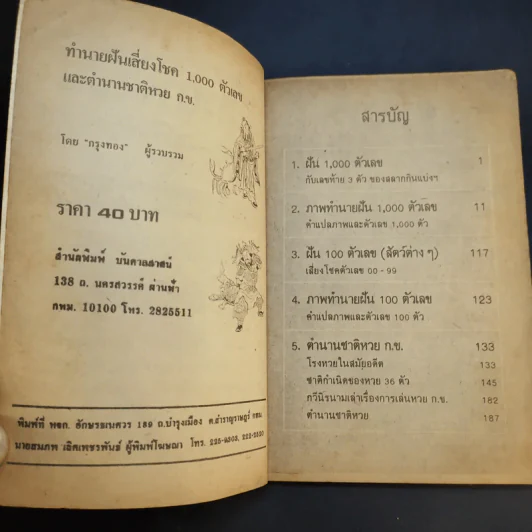 ทำนายฝันเสี่ยงโชค 1,000 ตัวเลข
และตำนานชาติหวย ก.ข.
โดย "กรุงทอง" ผู้รวบรวม
ราคา 40 บาท
สำนักพิมพ์ บันดาลสาส์น
138 ถ. นครสวรรค์ ผ่านฟ้า
กทม. 10100 โทร. 2825511
พิมพ์ที่ หจก. อักษรเนศวร 189 ถ.บำรุงเมือง ต.สำราญราษฎร์ กทม.
นายสมภพ เลิศเพชรพันธ์ ผู้พิมพ์โฆษณา โทร.
สารบัญ
1. ฝัน 1,000 ตัวเลข 1
กับเลขท้าย 3 ตัว ของสลากกินแบ่งฯ
2. ภาพทำนายฝัน 1,000 ตัวเลข 11
คำแปลภาพและตัวเลข 1,000 ตัว
3. ฝัน 100 ตัวเลข (สัตว์ต่าง ๆ) 117
เสี่ยงโชคตัวเลข 00 - 99
4. ภาพทำนายฝัน 100 ตัวเลข 123
คำแปลภาพและตัวเลข 100 ตัว
5. ตำนานชาติหวย ก.ข. 133
โรงหวยในสมัยอดีต 133
ชาติกำเนิดของหวย 36 ตัว 145
กวีนิรนามเล่าเรื่องการเล่นหวย ก.ข. 182
ตำนานชาติหวย 187